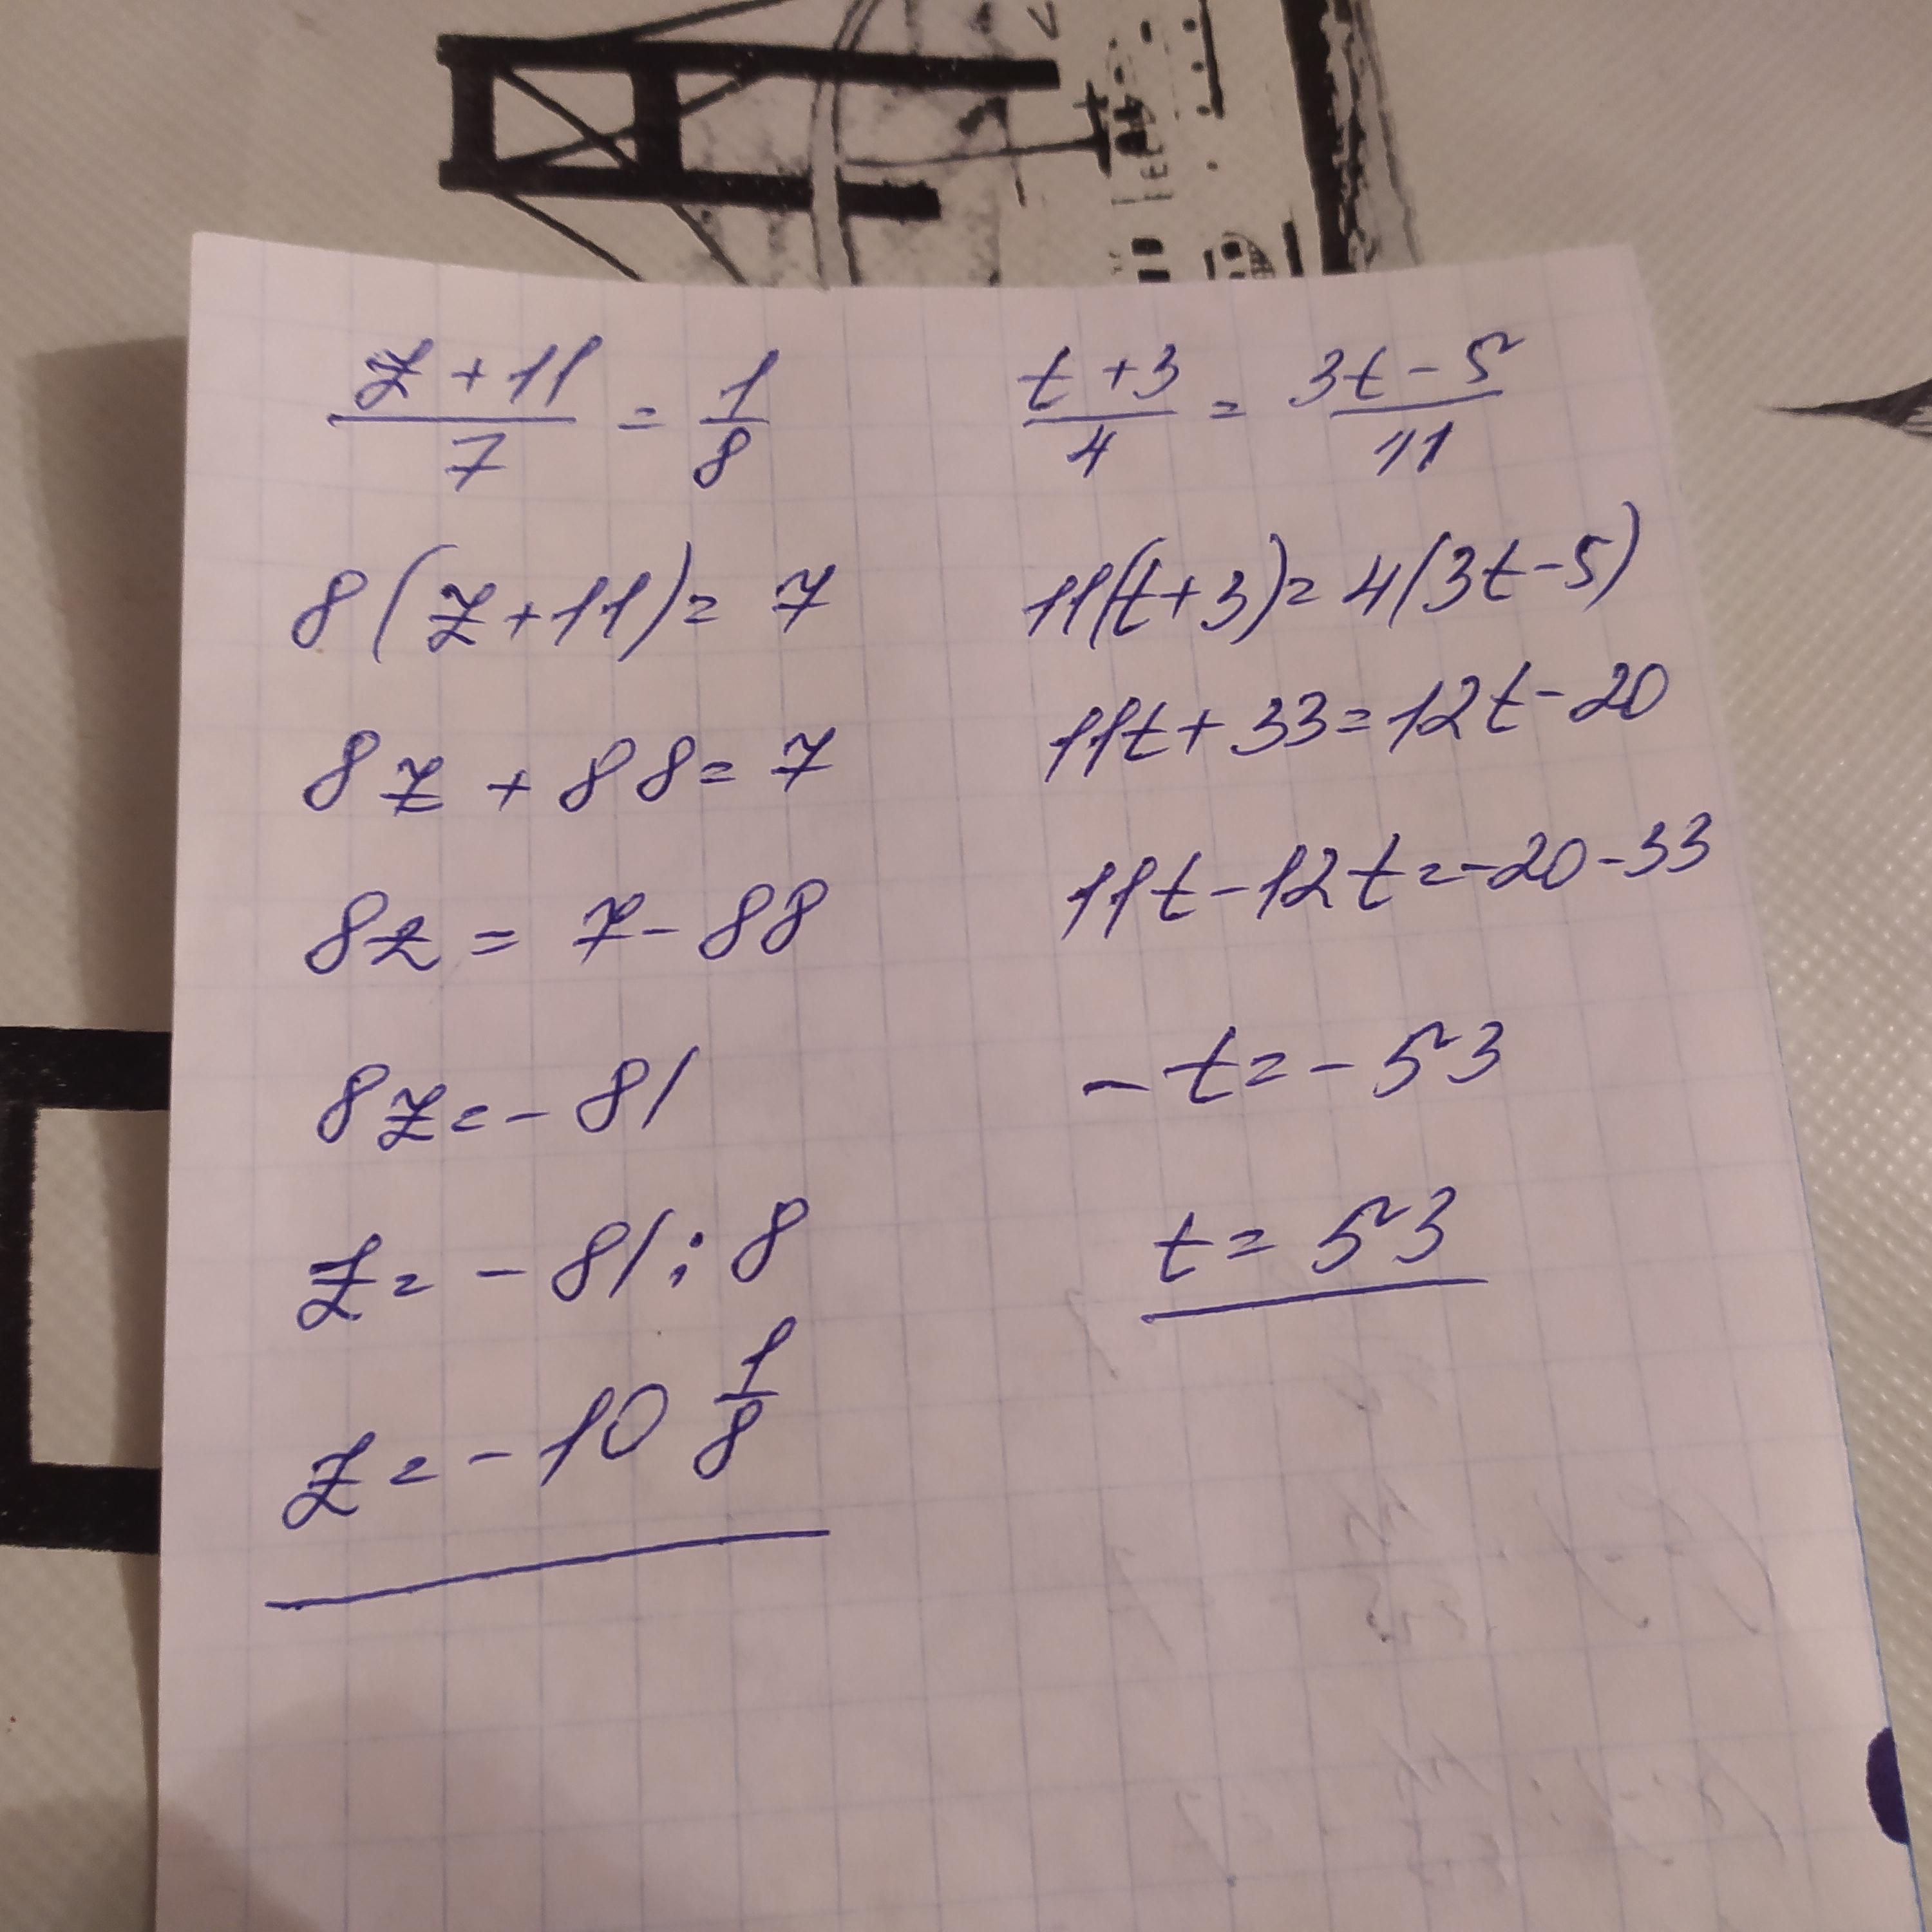 (z + 11)/7 = 1/8
8(z+11) = 7
8z + 88 = 7
8z = 7 - 88
8z = - 81
z = - 81 : 8
z = - 10 1/8
(t + 3)/4 = (3t - 5)/11
11(t+3) = 4(3t-5)
11t + 33 = 12t - 20
11t - 12t = -20 - 33
- t = - 53
t = 53